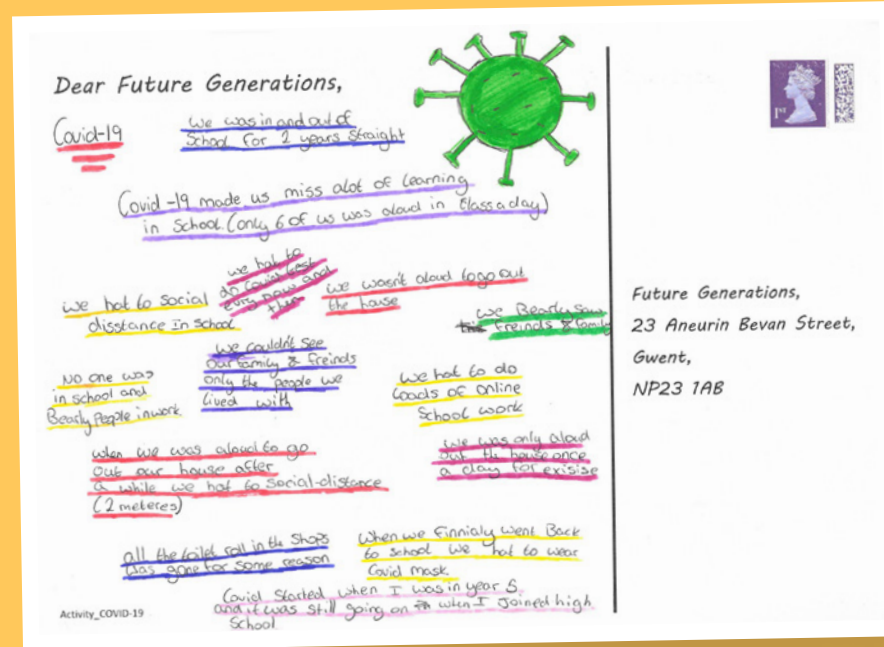 Dear Future Generations,
Covid-19
we was in and out of
School for 2 years straight
Covid-19 made us miss alot of learning
in School. (only 6 of us was aloud in class a day)
we hat to social
disstance In school
we hat to
do Covid test
every now and
then
we wasn't aloud to go out
the house
we Bearly saw
freinds & family
No one was
in school and
Bearly People in work
we couldn't see
our family & freinds
only the people we
lived with
we hat to do
Loads of online
School work
when we was aloud to go
out our house after
a while we hat to social-distance
(2 meteres)
we was only aloud
out the house once
a day for exisise
all the toilet roll in the shops
was gone for some reason
When we finnialy went Back
to school we hat to wear
Covid mask
Covid Started when I was in year 5
and it was still going on when I joined high
School
Activity_COVID-19
1st
Future Generations,
23 Aneurin Bevan Street,
Gwent,
NP23 1AB